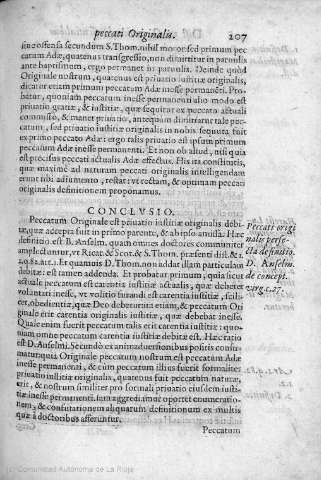 peccati Originalis. 207
sin offensa secundum S. Thom. nihil mouer sed primum pec
catum Adæ, quatenus transgressio, non dimittitur in paruulis
ante baptismum, ergo permanet in paruulis. Deinde quod
Originale nostrum, quatenus est priuatio iustitiæ originalis,
dicatur etiam primum peccatum Adæ inesse permanēti. Pro-
batur, quoniam peccatum inesse permanenti alio modo est
priuatio gratiæ, & iustitiæ, quæ sequitur ex peccato actuali
commisso, & manet priuatio, antequam dimittatur tale pec-
catum, sed priuatio iustitiæ originalis in nobis sequuta fuit
ex primo peccato Adæ: ergo talis priuatio est ipsum primum
peccatum Adæ inesse permanenti. Et non obstat, nisi quia
est præcisus peccati actualis Adæ effectus. His ita constitutis,
quæ maximè ad naturam peccati originalis intelligendam
sunt tibi adiumento, restat: vt rectam, & optimam peccati
originalis definitionem proponamus.
CONCLVSIO.
Peccatum Originale est priuatio iustitiæ originalis debi-
tæ, quæ accepta fuit in primo parente, & ab ipso amissa. Hæc
definitio est B. Anselm. quam omnes doctores communiter
amplectuntur, vt
Peccati origi
nalis perfe-
cta definitio.
D. Anselm.
de concept.
virg. c. 27.
& Scot. & S. Thom. præsenti dist. &
Et quamuis D. Thom. non addat illam particulam
debitæ: est tamen addenda. Et probatur primum, quia sicut
actuale peccatum est carentia iustitiæ actualis, quæ debetet
voluntati inesse,
quæ Deo debetur: ita etiam, & peccatum Ori
ginale erit carentia iustitiæ originalis, quæ debebat inesse.
Quale enim fuerit peccatum talis erit carentia iustitiæ: quo-
niam omne peccatum carentia iustitiæ debitæ est. Hæc ratio
est D. Anselmi. Secundo ex animaduersionibus positis consir-
matur: quia Originale peccatum nostrum est peccatum Adæ
inesse permanenti, & cùm peccatum illius fuerit formaliter
priuatio iustitiæ originalis, quatenus fuit peccatum naturæ,
erit, & nostrum similiter pro formali priuatio eiusdem iusti-
tiæ inesse permanenti. Iam aggrediamur oportet enumeratio-
nem, & confutationem aliquarum definitionum ex multis
quæ à doctoribus afferuntur.
Peccatum
(c) Comunidad Autónoma de La Rioja